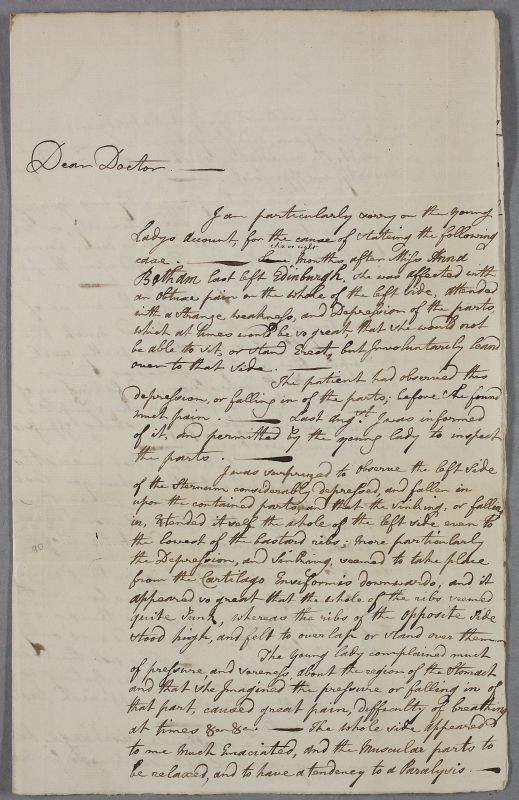 Dear Doctor. —
I am particularly sorry on the young
Ladys account, for the cause of stateing the following
case. — months after Miss Anna
Betham last left Edinburgh, she was affected with
an obtuse pain on the whole of the left side, attended
with a strange weakness, and Depression of the parts,
which at times would be so great, that she would not
be able to sit, or stand Erect, but Involuntarely lean
over to that side. —
The patient had observed this
depression, or falling in of the parts, before she found
much pain. — Last Augst. I was informed
of it, and permitted by the young lady to inspect
the parts. —
I was surprized to observe the left side
of the Sternum considerably depressed, and fallen in
upon the contained parts, and that the sinking, or fallen
in, extended itself the whole of the left side even to
the lowest of the bastard ribs; more particularly
the Depression, and Sinking, seemed to take place
from the Cartilago Ensiformis downwards, and it
appeared so great that the whole of the ribs seemed
quite sunk, whereas the ribs of the opposite side
stood high, and felt to overlap or stand over them
The young lady complained much
of pressure, and soreness, about the region of the Stomach
and that she Imagined the pressure or falling in of
that part, caused great pain, difficulty of breathing
at times &c &c. — The whole side appeared
to me much Emaciated, and the Muscular parts to
be relaxed, and to have a tendency to a Paralysis. —
90